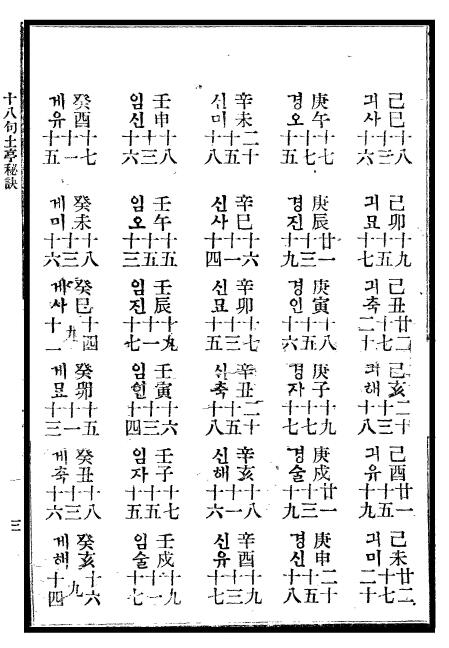 己巳十八 己卯十九 己丑廿二 己亥二十 己酉廿一 己未廿二
十三 十五 十七 十三 十五 十七
긔사十六 긔묘十七 긔축二十 긔해十八 긔유十九 긔미二十
庚午十七 庚辰廿一 庚寅十八 庚子十九 庚戌廿一 庚申二十
十七 十三 十五 十七 十三 十五
경오十五 경진十九 경인十六 경자十七 경술十九 경신十八
辛未二十 辛巳十六 辛卯十七 辛丑二十 辛亥十八 辛酉十九
十五 十一 十三 十五 十一 十三
신미十八 신사十四 신묘十五 신축十八 신해十六 신유十七
壬申十八 壬午十五 壬辰十九 壬寅十六 壬子十七 壬戌十九
十三 十五 十一 十三 十五 十一
임신十六 임오十三 임진十七 임인十四 임자十五 임술十七
癸酉十七 癸未十八 癸巳十四 癸卯十五 癸丑十八 癸亥十六
十一 十三 九 十一 十三 九
계유十五 계미十六 계사十二 계묘十三 계축十六 계해十四
十八句土亭秘訣
三